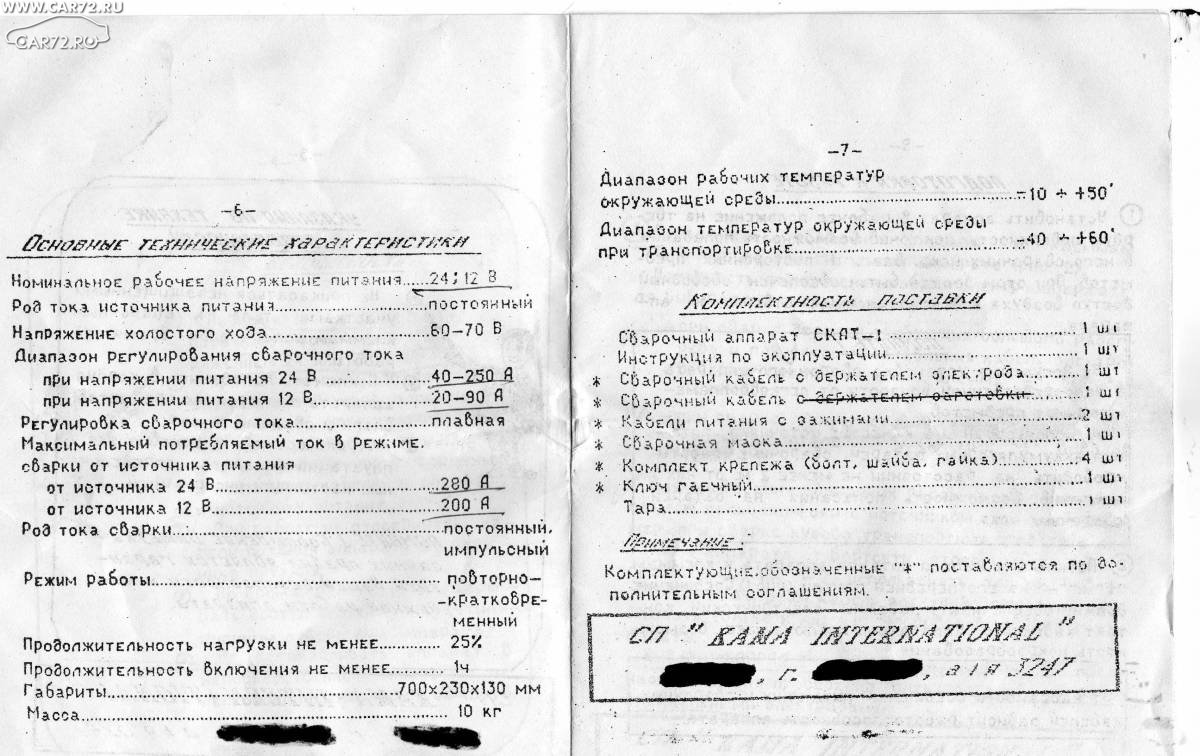 WWW.CAR72.RU
CAR72.RU
–6–
Основные технические характеристики
Номинальное рабочее напряжение питания.....24;12 В
Род тока источника питания....................постоянный
Напряжение холостого хода....................60–70 В
Диапазон регулирования сварочного тока
при напряжении питания 24 В ............40–250 А
при напряжении питания 12 В..............20–90 А
Регулировка сварочного тока................плавная
Максимальный потребляемый ток в режиме,
сварки от источника питания
от источника 24 В..........................280 А
от источника 12 В..........................200 А
Род тока сварки................................постоянный,
импульсный
Режим работы....................................повторно–
–кратковре–
менный
Продолжительность нагрузки не менее......25%
Продолжительность включения не менее......1ч
Габариты................................700х230х130 мм
Масса..........................................10 кг
–7–
Диапазон рабочих температур
окружающей среды..............................–10 ÷ +50°
Диапазон температур окружающей среды
при транспортировке............................–40 ÷ +60°
Комплектность поставки
Сварочный аппарат СКАТ–1....................1 шт
Инструкция по эксплуатации....................1 шт
* Сварочный кабель с держателем электрода....1 шт
* Сварочный кабель с держателем заготовки....1 шт
* Кабели питания с зажимами....................2 шт
* Сварочная маска................................1 шт
* Комплект крепежа (болт, шайба, гайка).......4 шт
* Ключ гаечный....................................1 шт
Тара..............................................1 шт
Примечание:
Комплектующие,обозначенные "*" поставляются по до–
полнительным соглашениям.
СП " КАМА INTERNATIONAL "
, г. , а/я 3247